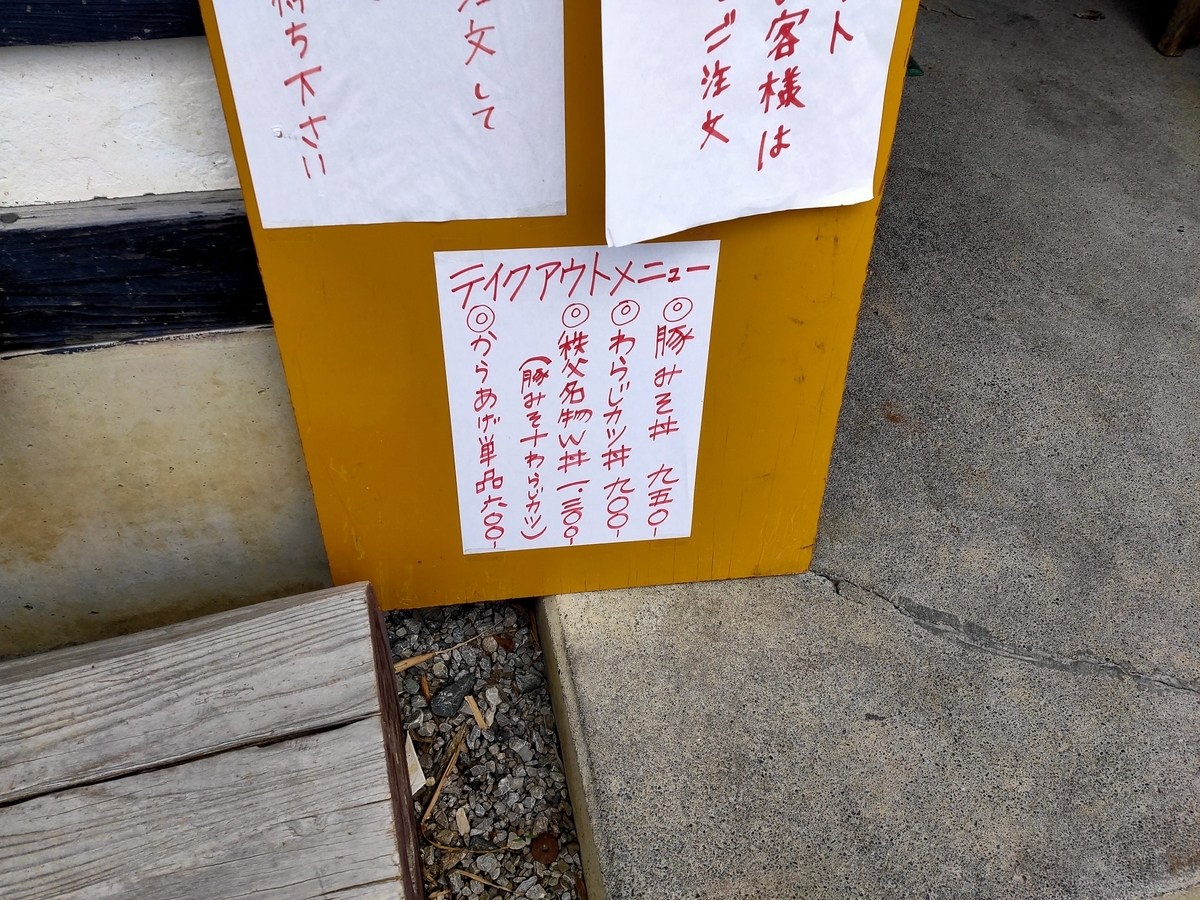 ト
客様は
ご注文
注文して
待ち下さい
テイクアウトメニュー
◎豚みそ丼 九五〇-
◎わらじカツ丼 九〇〇-
◎秩父名物W丼 一.三〇〇-
(豚みそ+わらじカツ)
◎からあげ単品 六〇〇-